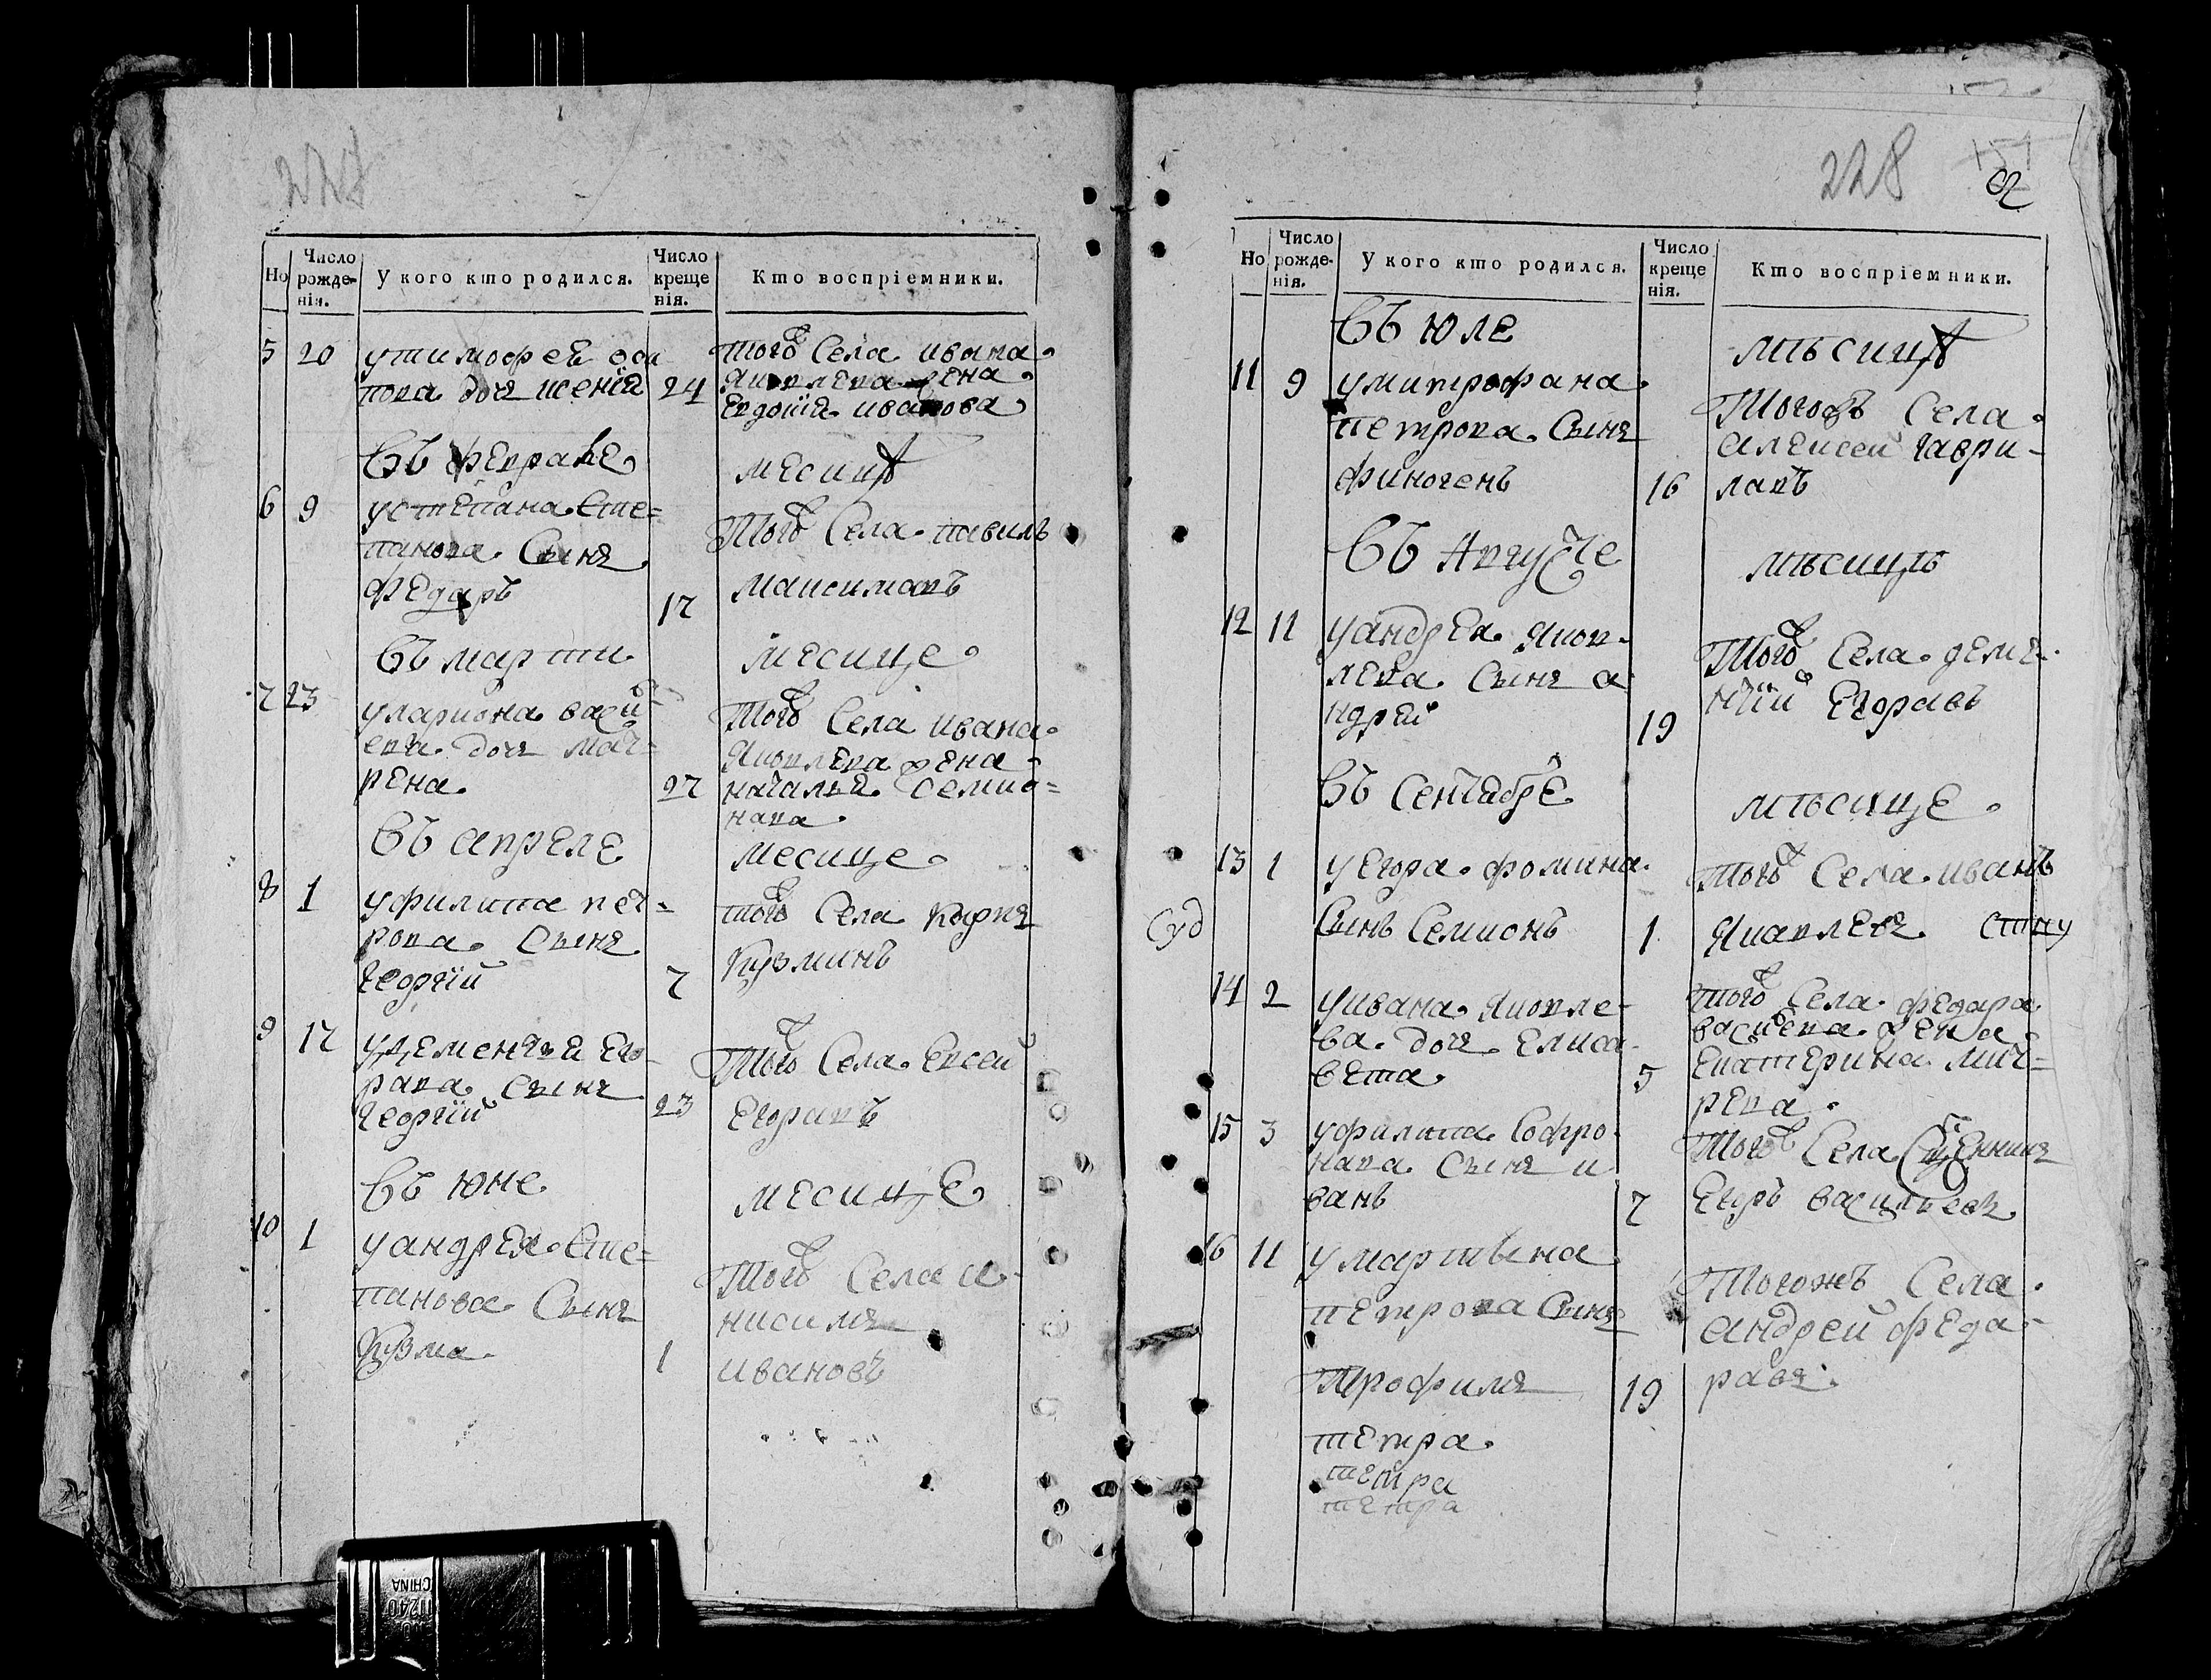 227
Но
Число рожде- нія.
У кого кто родился.
Число креще нія.
Кто воспріемники.
5 20 утимофея оси 24 того Села ивана
пова дочь ксенія
Яковлева жена
Евдокия иванова
въ феврале месица
6 9 устепана Сте=
панова Сынъ
федаръ 17
того Села павилъ
максимовъ
въ марти месице
7 23 улариона васи
ева дочь мат=
рена 27
того Села ивана
Яковлева жена
наталья Семио=
нава
въ апреле месице
8 1 уфилипа пет=
рова Сынъ
георгій 7
того Села карпъ
Кузминъ
9 17 удементея Его
рава Сынъ
георгій 23
того Села Евсей
Егоравъ
въ юне месице
10 1 уандрея Сте=
панова Сынъ
Кузма 1
того Села а-
нисимъ
ивановъ
228
62
Но
Число рожде- нія.
У кого кто родился.
Число креще нія.
Кто воспріемники.
въ юле мѣсица
11 9 умитрофана
петрова Сынъ
финогенъ 16
Тогожъ Села
алексей гаври-
лавъ
въ Августе мѣсицѣ
12 11 уандрея Яков-
лева Сынъ а
ндрей 19
Того Села деме-
нтій Егоравъ
въ Сентабре мѣсице
13 1 уЕгора фомина
Сынъ Семионъ 1
того Села иванъ
Яковлевъ
14 2 уивана Яковле-
ва дочь Елиса-
вета 5
того Села федара
васиева жена
Екатерина мит=
рева
15 3 уфилипа Софро-
нава Сынъ и
ванъ 7
Того Села Сщенникъ
Егоръ васильевъ
16 11 умартына
петрова Сынъ
Трофимъ 19
Тогожъ Села
андрей феда-
равъ
петра
петра
петра
CHINA